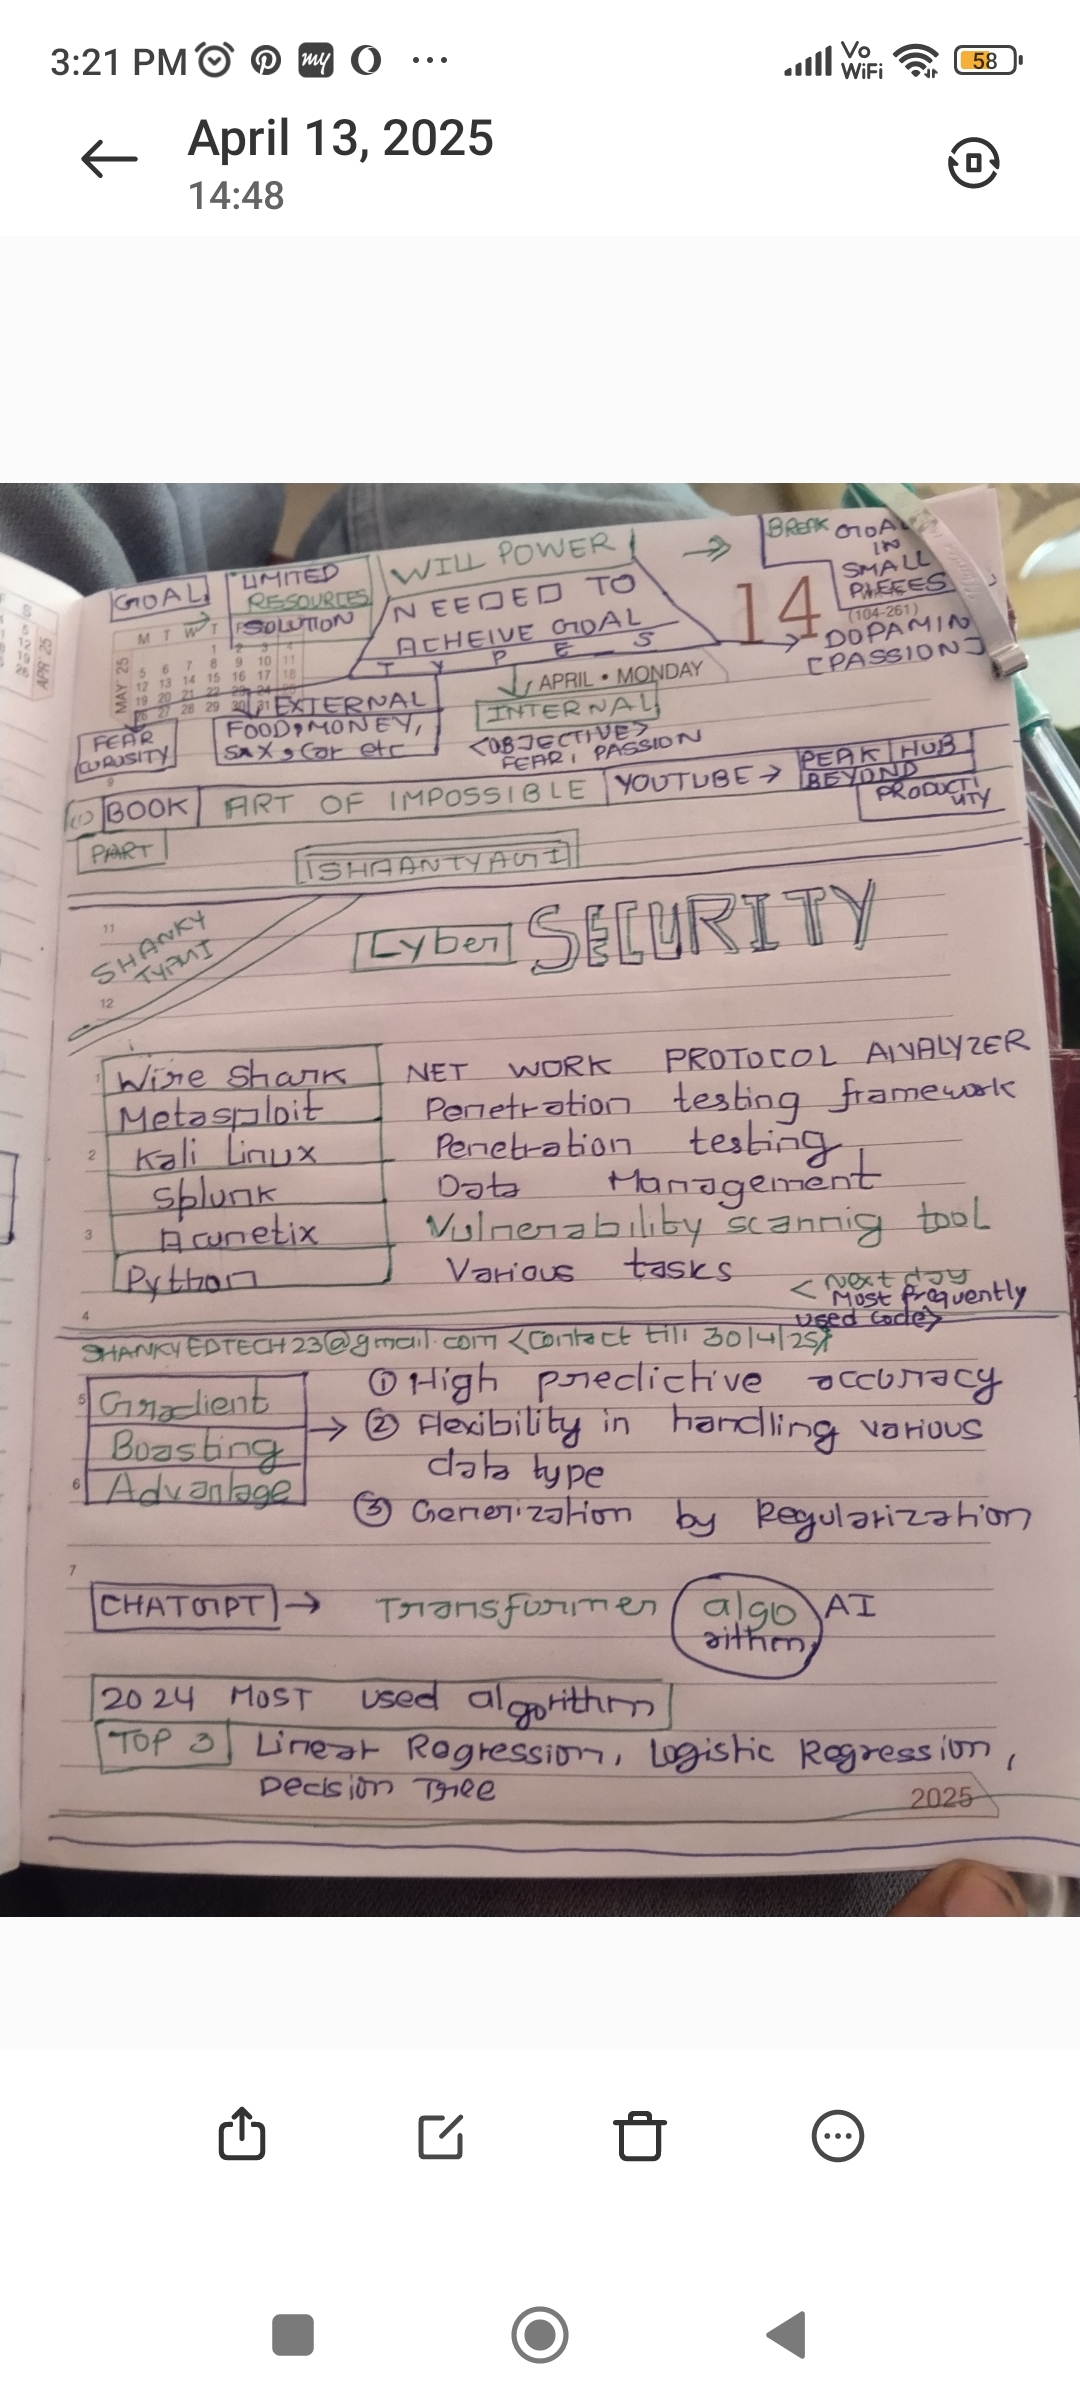 3:21 PM
Vo WiFi
58
April 13, 2025
14:48
GOAL
LIMITED
RESOURCES
SOLUTION
WILL POWER
NEEDED TO
ACHEIVE GOAL
T Y P E S
BREAK GOAL
IN
SMALL
PIECES
14
(104-261)
DOPAMIN
[PASSION]
APRIL • MONDAY
M T W T
MAY 25
APR 25
EXTERNAL
FOOD, MONEY,
SAX, Car etc
INTERNAL
<OBJECTIVE>
FEAR, PASSION
FEAR
CURUSITY
(1) BOOK ART OF IMPOSSIBLE YOUTUBE → PEAK HUB
BEYOND
PRODUCTI
UITY
PART
ISHAANTYAGI
SHANKY
TYAGI
Cyber SECURITY
Wire Shark NET WORK PROTOCOL ANALYZER
Metasploit Penetration testing framework
Kali Linux Penetration testing
Splunk Data Management
Acunetix Vulnerability scannig tool
Python Various tasks
<next day
Most frequently
used code>
SHANKYEDTECH23@gmail.com <Contact till 30/4/25>
Gradient
Boasting
Advantage
→
① High predictive accuracy
② Flexibility in handling various
data type
③ Generization by Regularization
CHATGPT → Transfurmer algo AI
rithm
2024 MOST used algorithm
TOP 3 Linear Rogression, Logistic Rogression,
Decision Tree
2025